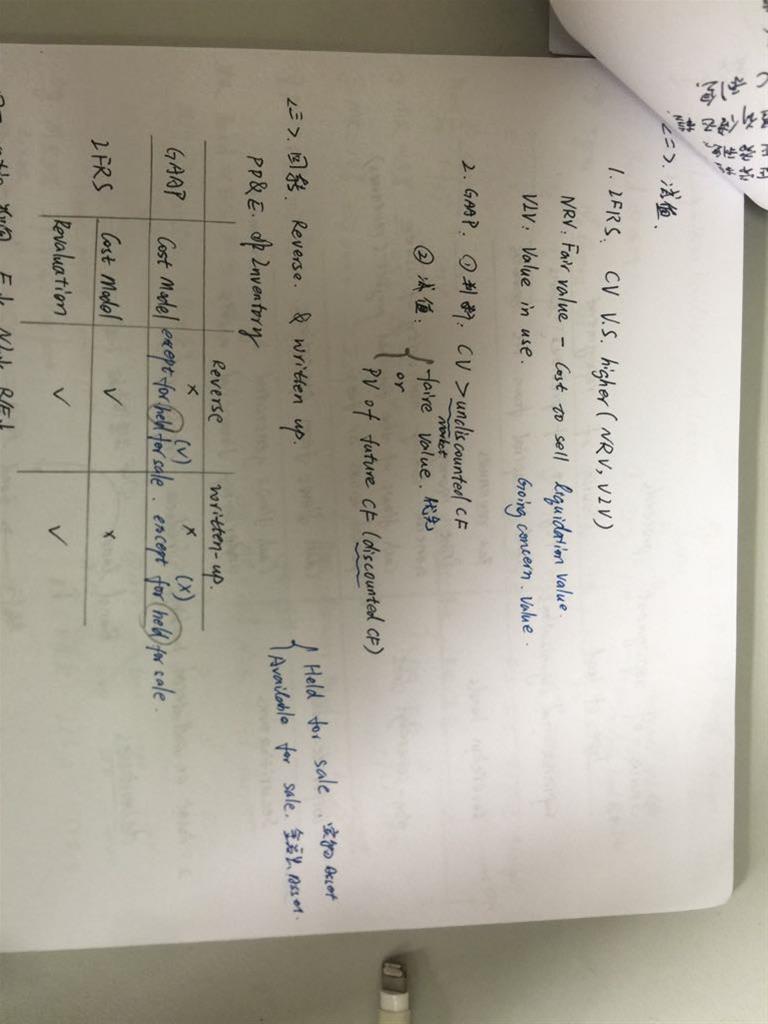 <二>. 减值.
1. IFRS. CV V.S. higher (NRV, VIV)
NRV: Fair value - Cost to sell liquidation value.
VIV: Value in use. Going concern. value.
2. GAAP. ① 判断: CV > undiscounted CF
② 减值: faire value. market 优先
or
PV of future CF (discounted CF)
<三>. 回转. Reverse. & written up.
PP&E. Inventory
Held for sale. 实物 asset
Available for sale. 金融 asset.
Reverse written-up.
GAAP Cost Model × (√) × (×)
except for held for sale. except for held for sale.
IFRS Cost Model √ ×
Revaluation √ √